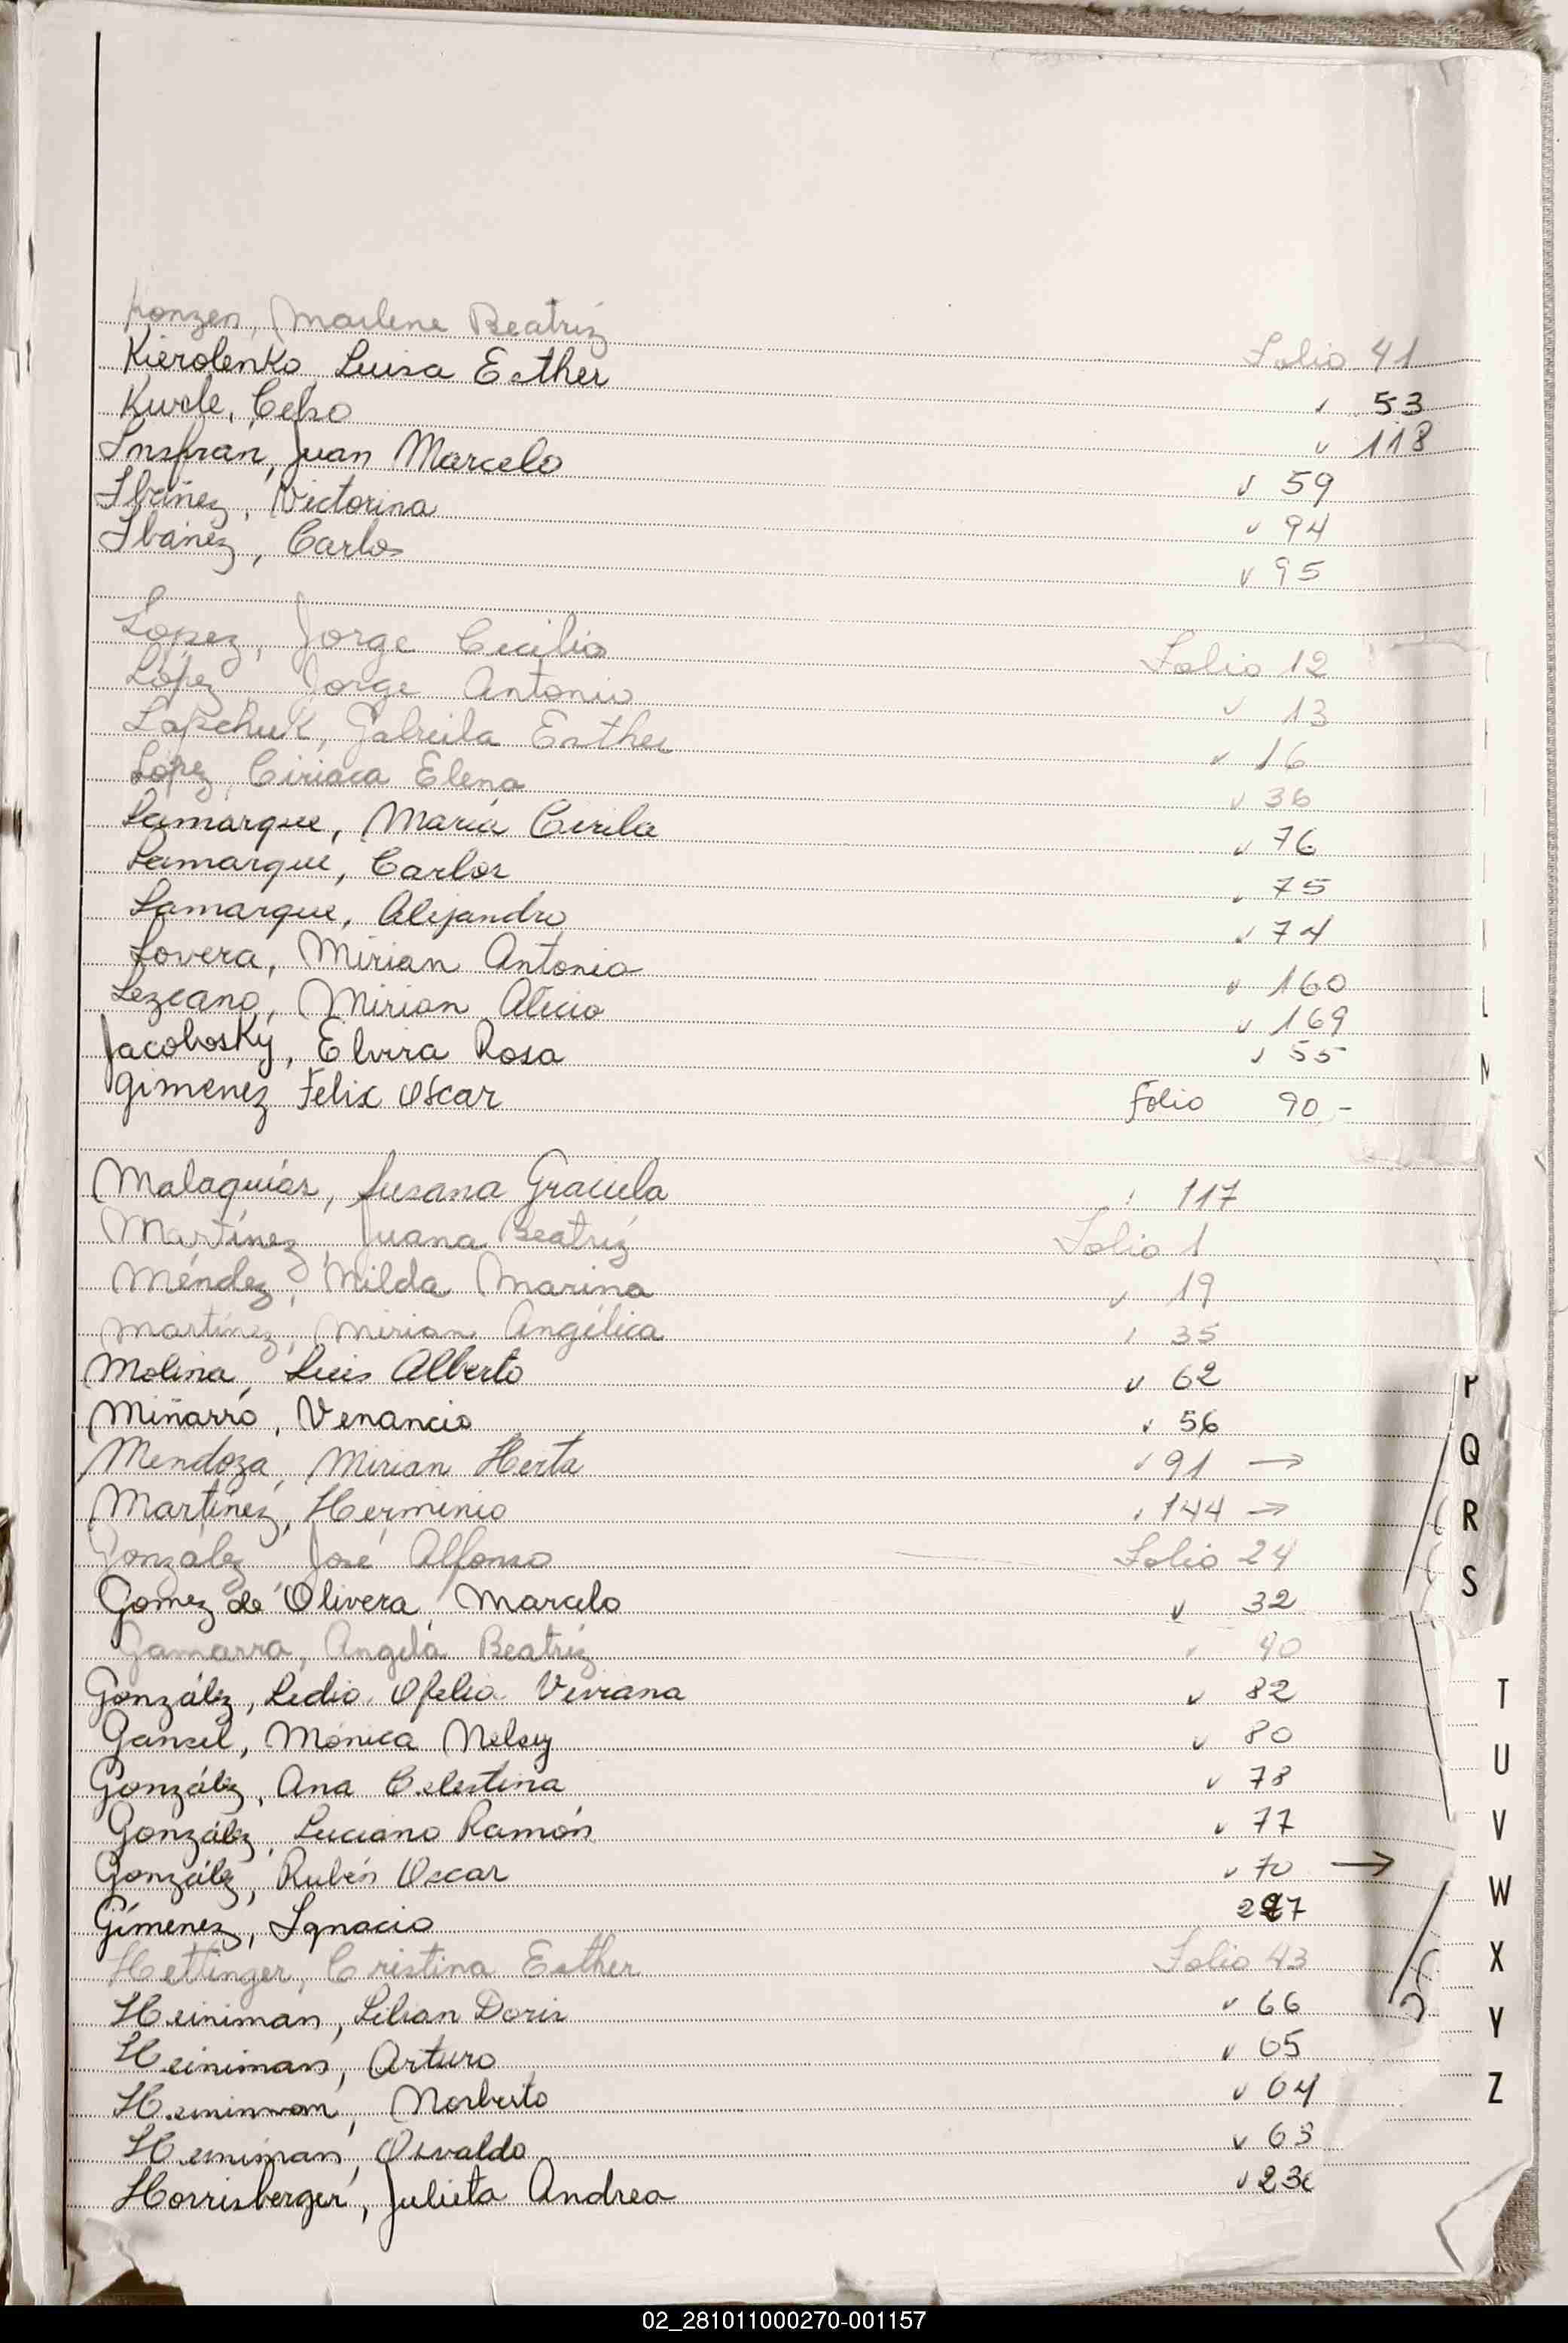 Konzen, Marlene Beatriz Folio 41
Kierolenko, Luisa Esther " 53
Kurle, Celso " 118
Insfran, Juan Marcelo " 59
Ibáñez, Victorina " 94
Ibáñez, Carlos " 95
López, Jorge Cecilio Folio 12
López, Jorge Antonio " 13
Lapchuk, Gabreila Esther " 16
López, Ciriaca Elena " 36
Lamarque, María Cirila " 76
Lamarque, Carlos " 75
Lamarque, Alejandro " 74
Lovera, Mirian Antonia " 160
Lezcano, Mirian Alicia " 169
Jacobosky, Elvira Rosa " 55
Gimenez Felix Oscar Folio 90 -
Malaquías, Susana Graciela " 117
Martínez, Juana Beatriz Folio 1
Méndez, Nilda Marina " 19
Martínez, Mirian Angélica " 35
Molina, Luis Alberto " 62
Miñarro, Venancio " 56
Mendoza, Mirian Herta " 91 →
Martínez, Herminio " 144 →
González José Alfonso Folio 24
Gomez de Olivera, Marcelo " 32
Gamarra, Angela Beatriz " 40
González, Ledia Ofelia Viviana " 82
Gansel, Mónica Nelsy " 80
González, Ana Celestina " 78
González, Luciano Ramón " 77
González, Rubén Oscar " 70 →
Gímenez, Ignacio
Hettinger, Cristina Esther Folio 43
Heiniman, Lilian Doris " 66
Heiniman, Arturo " 65
Heiniman, Norberto " 64
Heiniman, Osvaldo " 63
Horrisberger, Julieta Andrea
L
M
P
Q
R
S
T
U
V
W
X
Y
Z
02_281011000270-001157